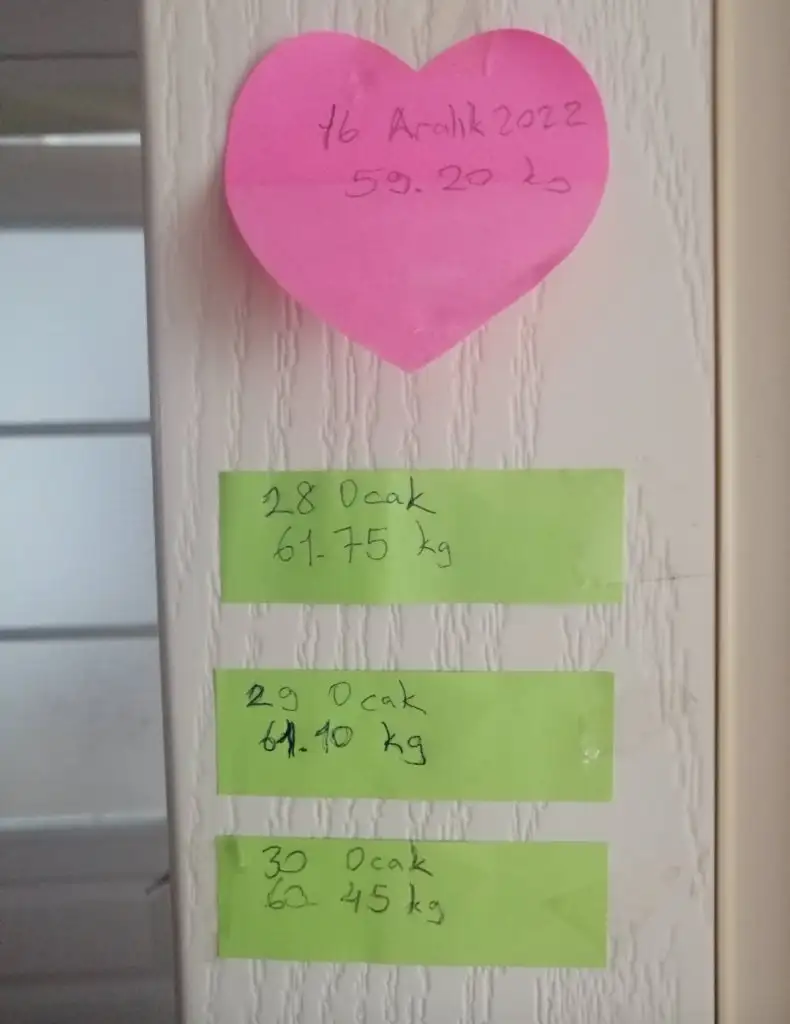 16 Aralık 2022
59.20 kg
28 Ocak
61.75 kg
29 Ocak
61.10 kg
30 Ocak
60.45 kg